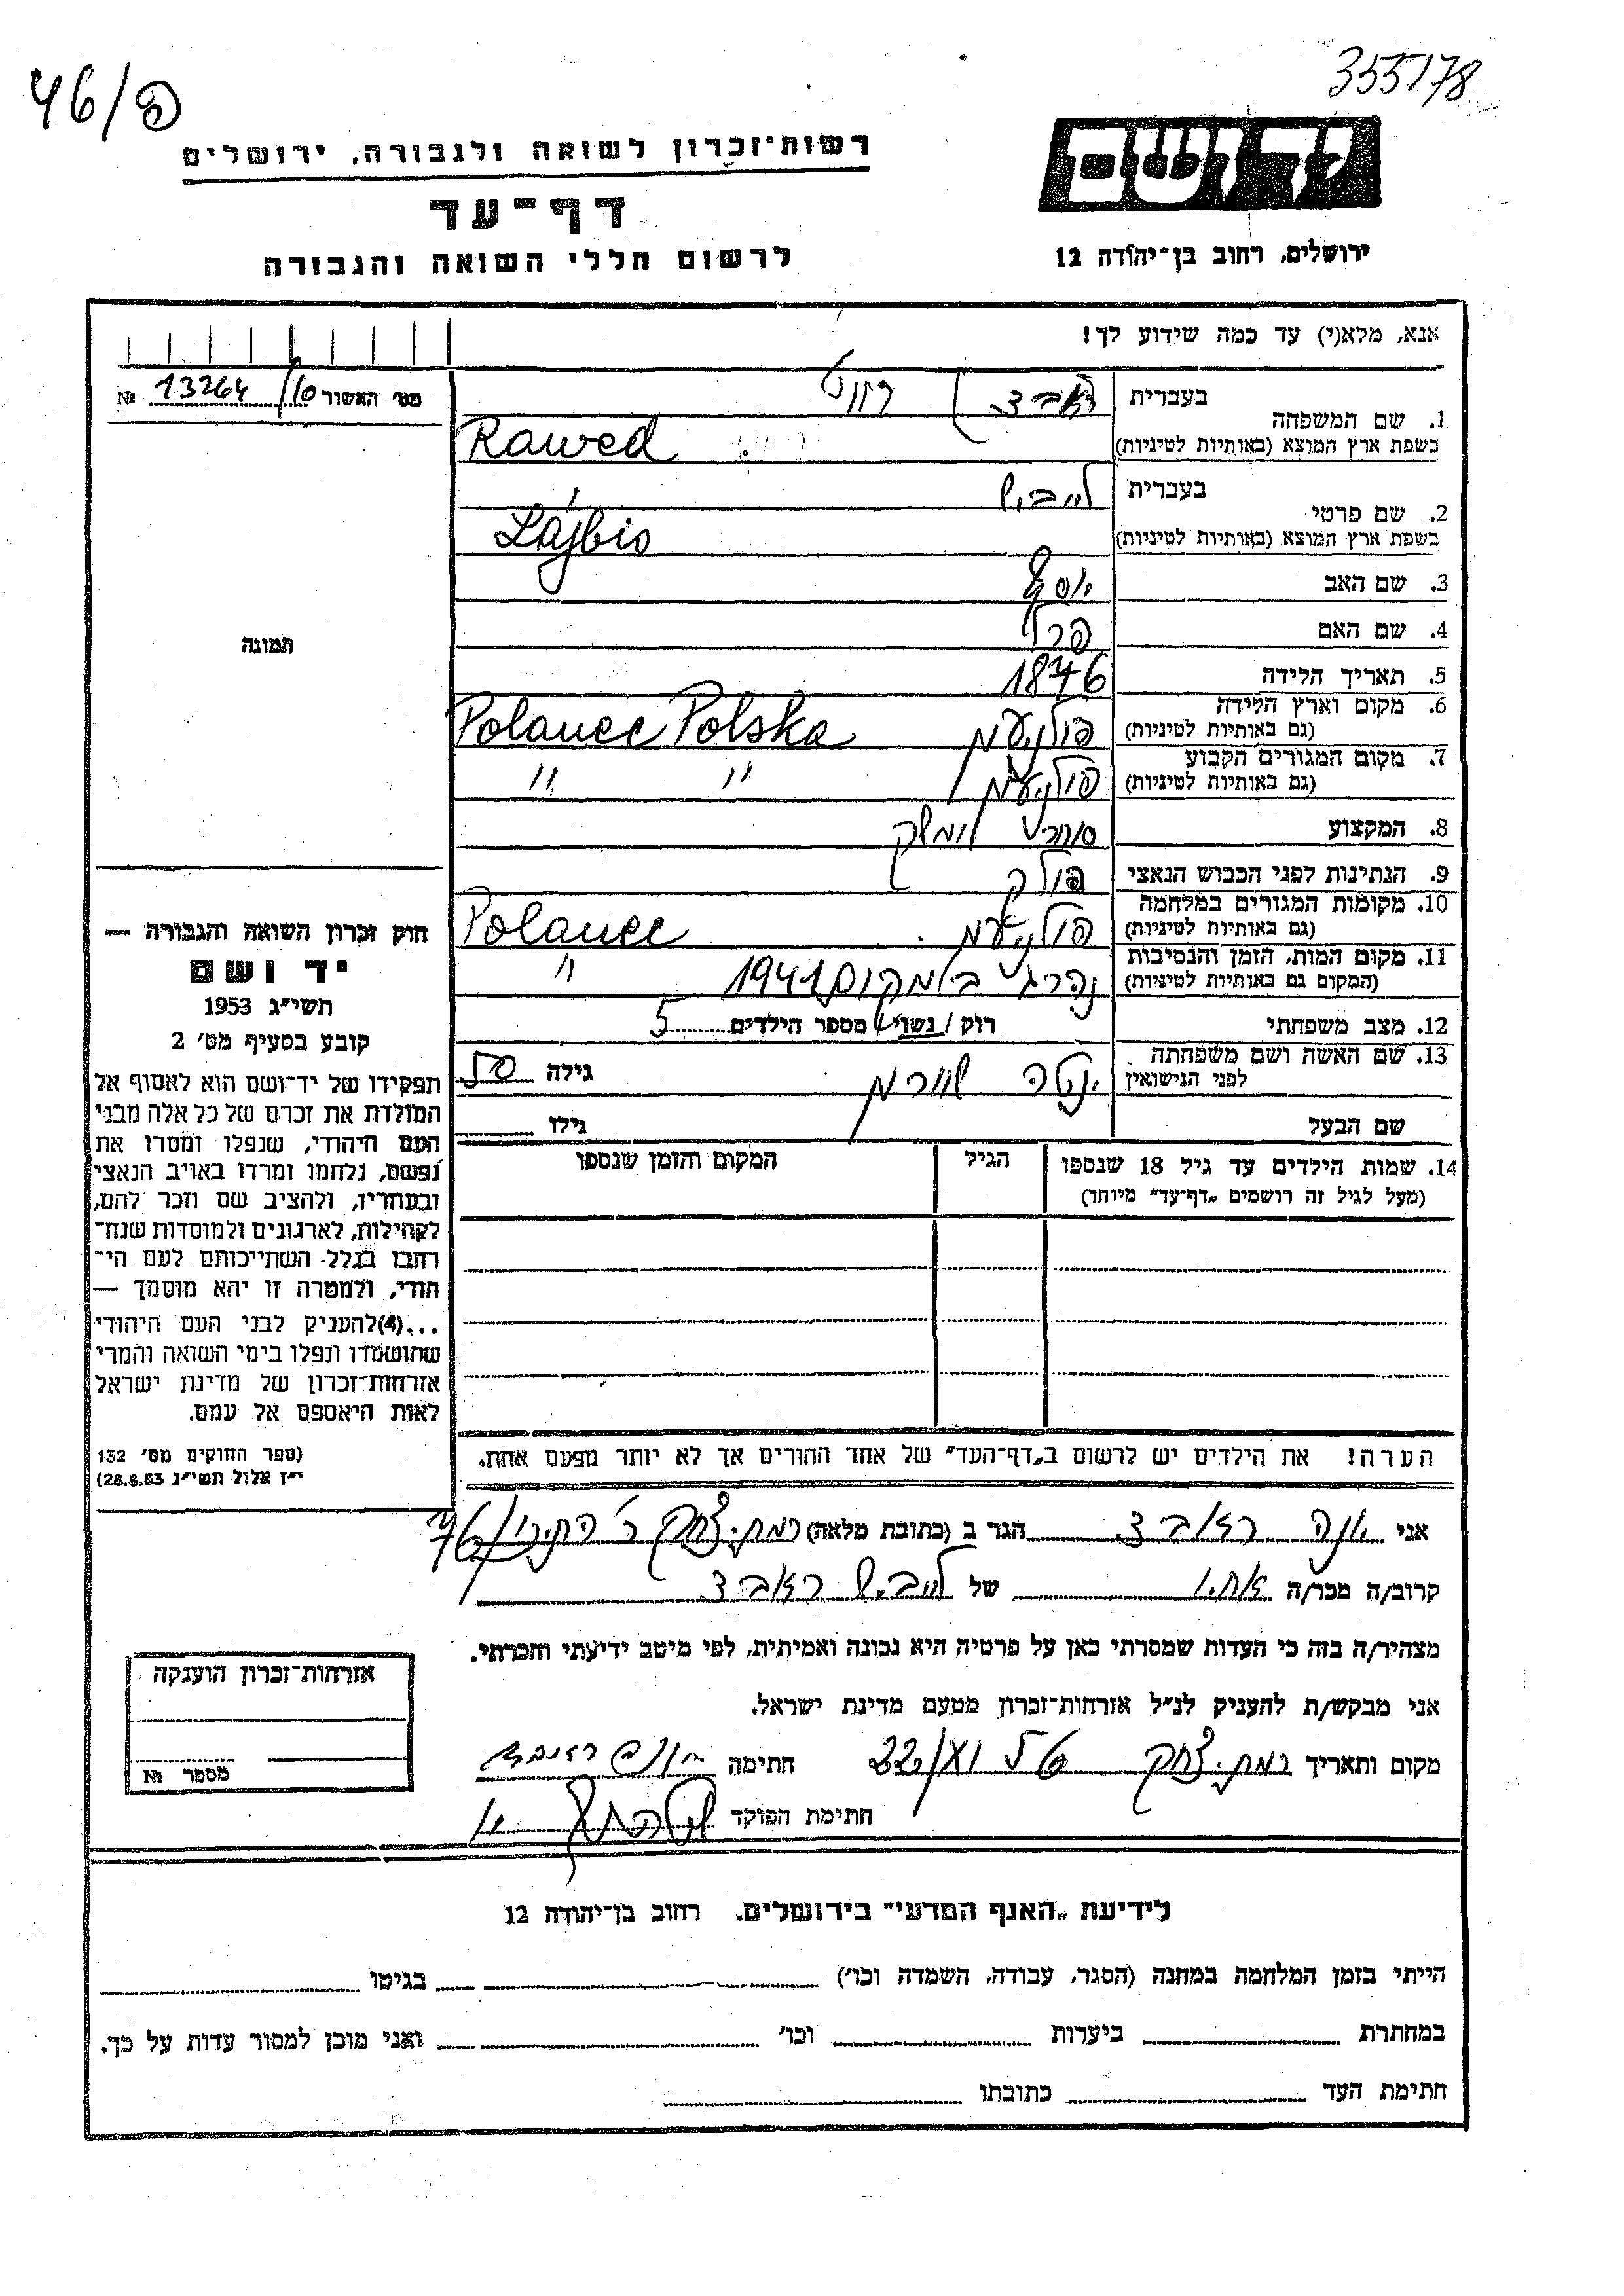 355178
46/פ
יד ושם
רשות-זכרון לשואה ולגבורה, ירושלים
דף-עד
לרשום חללי השואה והגבורה
ירושלים, רחוב בן-יהודה 12
אנא, מלא(י) עד כמה שידוע לך!
מס׳ האשור 10/ 13264 №
בעברית
1. שם המשפחה
בשפת ארץ המוצא (באותיות לטיניות) Rawed
בעברית לייביש
2. שם פרטי
בשפת ארץ המוצא (באותיות לטיניות) Lajbis
3. שם האב יוסף
4. שם האם פרל
תמונה
5. תאריך הלידה 1876
6. מקום וארץ הלידה
(גם באותיות לטיניות) Polanec Polska
7. מקום המגורים הקבוע
(גם באותיות לטיניות) " "
8. המקצוע סוחר
9. הנתינות לפני הכבוש הנאצי
10. מקומות המגורים במלחמה
(גם באותיות לטיניות) Polanec
11. מקום המות, הזמן והנסיבות
(המקום גם באותיות לטיניות) נהרג במקום 1941 "
12. מצב משפחתי רוק / נשוי מספר הילדים 5
13. שם האשה ושם משפחתה
לפני הנישואין גילה
שם הבעל גילו
14. שמות הילדים עד גיל 18 שנספו הגיל המקום והזמן שנספו
(מעל לגיל זה רושמים „דף-עד״ מיוחד)
הערה! את הילדים יש לרשום ב„דף-העד״ של אחד ההורים אך לא יותר מפעם אחת.
חוק זכרון השואה והגבורה —
יד ושם
תשי״ג 1953
קובע בסעיף מס׳ 2
תפקידו של יד-ושם הוא לאסוף אל
המולדת את זכרם של כל אלה מבני
העם היהודי, שנפלו ומסרו את
נפשם, נלחמו ומרדו באויב הנאצי
ובעוזריו, ולהציב שם וזכר להם,
לקהילות, לארגונים ולמוסדות שנח-
רבו בגלל השתייכותם לעם הי-
הודי, ולמטרה זו יהא מוסמך —
...(4)להעניק לבני העם היהודי
שהושמדו ונפלו בימי השואה והמרי
אזרחות-זכרון של מדינת ישראל
לאות היאספם אל עמם.
(ספר החוקים מס׳ 132
י״ז אלול תשי״ג 28.8.53)
אני הגר ב (כתובת מלאה) רמת יצחק
קרוב/ה מכר/ה של לייביש
מצהיר/ה בזה כי העדות שמסרתי כאן על פרטיה היא נכונה ואמיתית, לפי מיטב ידיעתי והכרתי.
אני מבקש/ת להעניק לנ״ל אזרחות-זכרון מטעם מדינת ישראל.
מקום ותאריך רמת יצחק חתימה
חתימת הפוקד
אזרחות-זכרון הוענקה
מספר №
לידיעת „האגף המדעי״ בירושלים. רחוב בן-יהודה 12
הייתי בזמן המלחמה במחנה (הסגר, עבודה, השמדה וכו׳) בגיטו
במחתרת ביערות וכו׳ ואני מוכן למסור עדות על כך.
חתימת העד כתובתו